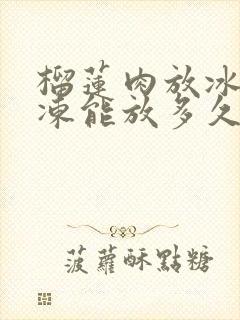 榴蓮肉放冰
凍能放多久
菠蘿酥點糖